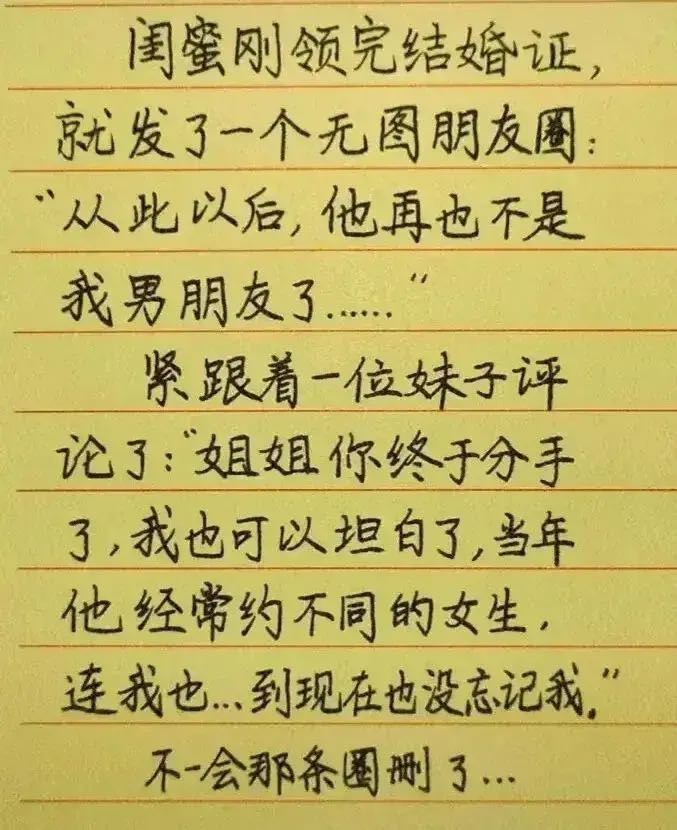 闺蜜刚领完结婚证,
就发了一个无图朋友圈:
“从此以后,他再也不是
我男朋友了......“
紧跟着一位妹子评
论了:“姐姐你终于分手
了,我也可以坦白了,当年
他经常约不同的女生,
连我也...到现在也没忘记我.”
不一会那条圈删了...